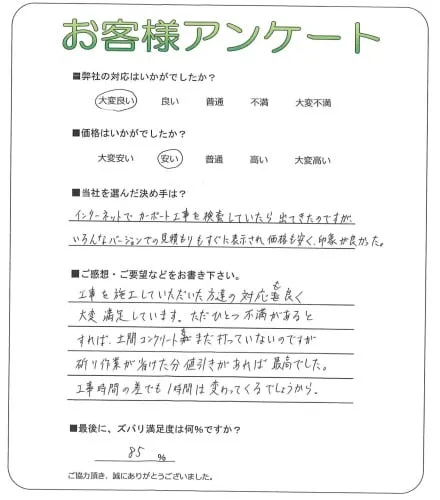 お客様アンケート
■弊社の対応はいかがでしたか？
大変良い 良い 普通 不満 大変不満
■価格はいかがでしたか？
大変安い 安い 普通 高い 大変高い
■当社を選んだ決め手は？
インターネットで カーポート工事を検索していたら 出てきたのですが、
いろんなバージョンでの見積もりもすぐに表示され 価格も安く、印象が良かった。
■ご感想・ご要望などをお書き下さい。
工事を施工していただいた方達の対応も良く
大変満足しています。ただひとつ不満があると
すれば、土間コンクリートまだ打っていないのですが
斫り作業が省けた分値引きがあれば最高でした。
工事時間の差でも1時間は変わってくるでしょうから。
■最後に、ズバリ満足度は何％ですか？
85 ％
ご協力頂き、誠にありがとうございました。